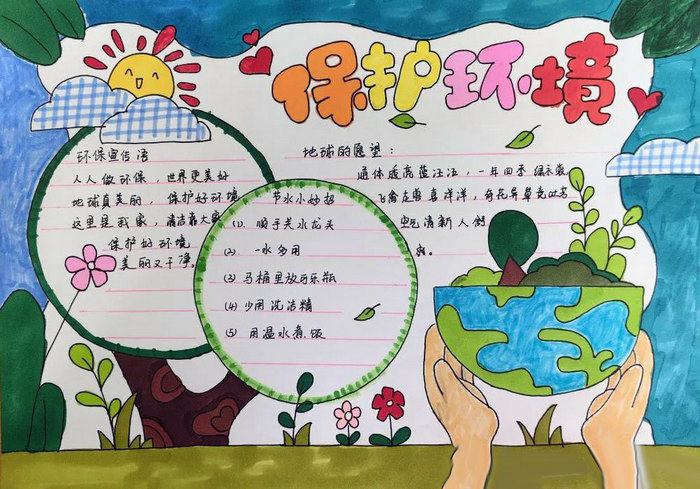 保护环境
环保宣传语
人人做环保，世界更美好
地球真美丽，保护好环境
这里是我家，清洁靠大家
保护好环境
美丽又干净。
节水小妙招
(1). 顺手关水龙头
(2). 一水多用
(3) 马桶里放可乐瓶
(4) 少用洗洁精
(5) 用温水煮饭
地球的愿望：
通体透亮蓝汪汪，一年四季绿衣裳
飞禽走兽喜洋洋，奇花异草竞吐芳
空气清新人们